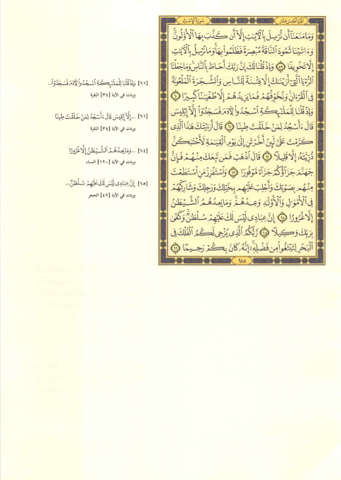 وَمَا مَنَعَنَا أَن نُّرْسِلَ بِالْآيَاتِ إِلَّا أَن كَذَّبَ بِهَا الْأَوَّلُونَ
وَءَاتَيْنَا ثَمُودَ النَّاقَةَ مُبْصِرَةً فَظَلَمُوا بِهَا وَمَا نُرْسِلُ بِالْآيَاتِ
إِلَّا تَخْوِيفًا ٥٩ وَإِذْ قُلْنَا لَكَ إِنَّ رَبَّكَ أَحَاطَ بِالنَّاسِ وَمَا جَعَلْنَا
الرُّءْيَا الَّتِي أَرَيْنَاكَ إِلَّا فِتْنَةً لِّلنَّاسِ وَالشَّجَرَةَ الْمَلْعُونَةَ
فِي الْقُرْءَانِ وَنُخَوِّفُهُمْ فَمَا يَزِيدُهُمْ إِلَّا طُغْيَانًا كَبِيرًا ٦٠
وَإِذْ قُلْنَا لِلْمَلَائِكَةِ اسْجُدُوا لِآدَمَ فَسَجَدُوا إِلَّا إِبْلِيسَ
قَالَ ءَأَسْجُدُ لِمَنْ خَلَقْتَ طِينًا ٦١ قَالَ أَرَءَيْتَكَ هَذَا الَّذِي
كَرَّمْتَ عَلَيَّ لَئِنْ أَخَّرْتَنِ إِلَى يَوْمِ الْقِيَامَةِ لَأَحْتَنِكَنَّ
ذُرِّيَّتَهُ إِلَّا قَلِيلًا ٦٢ قَالَ اذْهَبْ فَمَن تَبِعَكَ مِنْهُمْ فَإِنَّ
جَهَنَّمَ جَزَاؤُكُمْ جَزَاءً مَّوْفُورًا ٦٣ وَاسْتَفْزِزْ مَنِ اسْتَطَعْتَ
مِنْهُم بِصَوْتِكَ وَأَجْلِبْ عَلَيْهِم بِخَيْلِكَ وَرَجِلِكَ وَشَارِكْهُمْ
فِي الْأَمْوَالِ وَالْأَوْلَادِ وَعِدْهُمْ وَمَا يَعِدُهُمُ الشَّيْطَانُ
إِلَّا غُرُورًا ٦٤ إِنَّ عِبَادِي لَيْسَ لَكَ عَلَيْهِمْ سُلْطَانٌ وَكَفَى
بِرَبِّكَ وَكِيلًا ٦٥ رَّبُّكُمُ الَّذِي يُزْجِي لَكُمُ الْفُلْكَ فِي
الْبَحْرِ لِتَبْتَغُوا مِن فَضْلِهِ إِنَّهُ كَانَ بِكُمْ رَحِيمًا ٦٦
٢٨٨
[٦١] وَإِذْ قُلْنَا لِلْمَلَائِكَةِ اسْجُدُوا لِآدَمَ فَسَجَدُوا...
وردت في الآية [٣٤] البقرة
[٦١] ...إِلَّا إِبْلِيسَ قَالَ ءَأَسْجُدُ لِمَنْ خَلَقْتَ طِينًا
وردت في الآية [٣٤] البقرة
[٦٤] ...وَمَا يَعِدُهُمُ الشَّيْطَانُ إِلَّا غُرُورًا
وردت في الآية [١٢٠] النساء
[٦٥] إِنَّ عِبَادِي لَيْسَ لَكَ عَلَيْهِمْ سُلْطَانٌ...
وردت في الآية [٤٢] الحجر